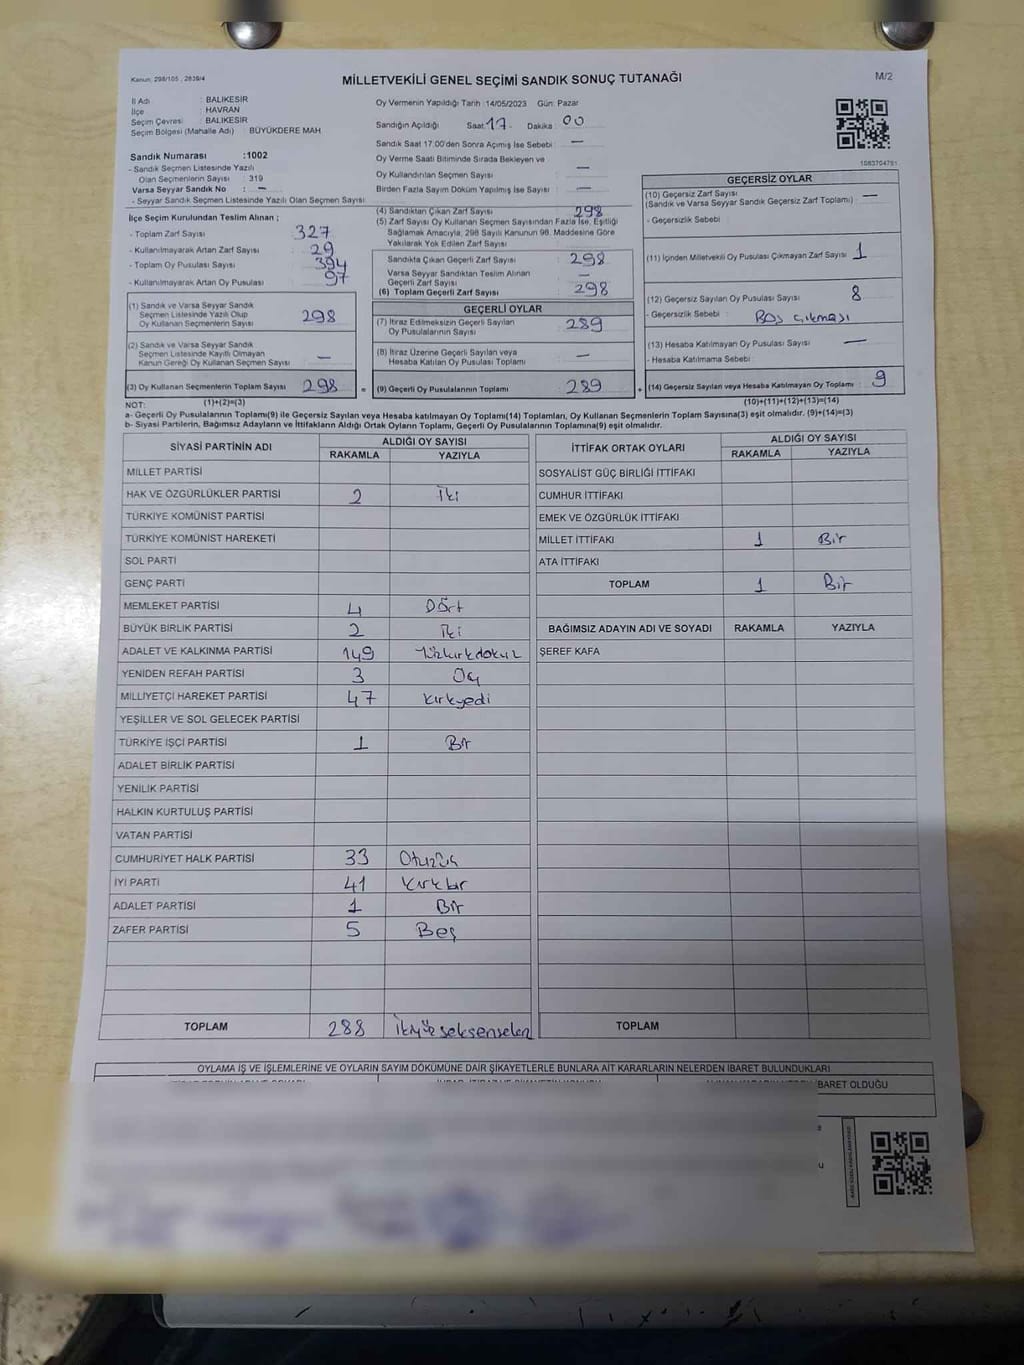 Kanun: 298/105 , 2839/4
MİLLETVEKİLİ GENEL SEÇİMİ SANDIK SONUÇ TUTANAĞI
M/2
İl Adı : BALIKESİR
İlçe : HAVRAN
Seçim Çevresi : BALIKESİR
Seçim Bölgesi (Mahalle Adı) : BÜYÜKDERE MAH
Sandık Numarası :1002
- Sandık Seçmen Listesinde Yazılı
Olan Seçmenlerin Sayısı : 319
Varsa Seyyar Sandık No : —
- Seyyar Sandık Seçmen Listesinde Yazılı Olan Seçmen Sayısı
İlçe Seçim Kurulundan Teslim Alınan ;
- Toplam Zarf Sayısı : 327
- Kullanılmayarak Artan Zarf Sayısı : 29
- Toplam Oy Pusulası Sayısı : 394
- Kullanılmayarak Artan Oy Pusulası : 97
(1) Sandık ve Varsa Seyyar Sandık
Seçmen Listesinde Yazılı Olup
Oy Kullanan Seçmenlerin Sayısı : 298
(2) Sandık ve Varsa Seyyar Sandık
Seçmen Listesinde Kayıtlı Olmayan
Kanun Gereği Oy Kullanan Seçmen Sayısı : —
(3) Oy Kullanan Seçmenlerin Toplam Sayısı : 298
Oy Vermenin Yapıldığı Tarih :14/05/2023 Gün: Pazar
Sandığın Açıldığı Saat: 17 Dakika : 00
Sandık Saat 17.00'den Sonra Açımış İse Sebebi : —
Oy Verme Saati Bitiminde Sırada Bekleyen ve
Oy Kullandırılan Seçmen Sayısı : —
Birden Fazla Sayım Döküm Yapılmış İse Sayısı : —
(4) Sandıktan Çıkan Zarf Sayısı : 298
(5) Zarf Sayısı Oy Kullanan Seçmen Sayısından Fazla İse, Eşitliği
Sağlamak Amacıyla, 298 Sayılı Kanunun 98. Maddesine Göre
Yakılarak Yok Edilen Zarf Sayısı :
Sandıkta Çıkan Geçerli Zarf Sayısı : 298
Varsa Seyyar Sandıktan Teslim Alınan
Geçerli Zarf Sayısı : —
(6) Toplam Geçerli Zarf Sayısı : 298
GEÇERLİ OYLAR
(7) İtiraz Edilmeksizin Geçerli Sayılan
Oy Pusulalarının Sayısı : 289
(8) İtiraz Üzerine Geçerli Sayılan veya
Hesaba Katılan Oy Pusulası Toplamı : —
= (9) Geçerli Oy Pusulalarının Toplamı : 289
1083704791
GEÇERSİZ OYLAR
(10) Geçersiz Zarf Sayısı : —
(Sandık ve Varsa Seyyar Sandık Geçersiz Zarf Toplamı)
- Geçersizlik Sebebi :
(11) İçinden Milletvekili Oy Pusulası Çıkmayan Zarf Sayısı : 1
(12) Geçersiz Sayılan Oy Pusulası Sayısı : 8
- Geçersizlik Sebebi : Boş çıkması
(13) Hesaba Katılmayan Oy Pusulası Sayısı : —
- Hesaba Katılmama Sebebi :
+ (14) Geçersiz Sayılan veya Hesaba Katılmayan Oy Toplamı : 9
NOT: (1)+(2)=(3) (10)+(11)+(12)+(13)=(14)
a- Geçerli Oy Pusulalarının Toplamı(9) ile Geçersiz Sayılan veya Hesaba katılmayan Oy Toplamı(14) Toplamları, Oy Kullanan Seçmenlerin Toplam Sayısına(3) eşit olmalıdır. (9)+(14)=(3)
b- Siyasi Partilerin, Bağımsız Adayların ve İttifakların Aldığı Ortak Oyların Toplamı, Geçerli Oy Pusulalarının Toplamına(9) eşit olmalıdır.
SİYASİ PARTİNİN ADI ALDIĞI OY SAYISI
RAKAMLA YAZIYLA
MİLLET PARTİSİ
HAK VE ÖZGÜRLÜKLER PARTİSİ 2 İki
TÜRKİYE KOMÜNİST PARTİSİ
TÜRKİYE KOMÜNİST HAREKETİ
SOL PARTİ
GENÇ PARTİ
MEMLEKET PARTİSİ 4 Dört
BÜYÜK BİRLİK PARTİSİ 2 İki
ADALET VE KALKINMA PARTİSİ 149 Yüzkırkdokuz
YENİDEN REFAH PARTİSİ 3 Üç
MİLLİYETÇİ HAREKET PARTİSİ 47 Kırkyedi
YEŞİLLER VE SOL GELECEK PARTİSİ
TÜRKİYE İŞÇİ PARTİSİ 1 Bir
ADALET BİRLİK PARTİSİ
YENİLİK PARTİSİ
HALKIN KURTULUŞ PARTİSİ
VATAN PARTİSİ
CUMHURİYET HALK PARTİSİ 33 Otuzüç
İYİ PARTİ 41 Kırkbir
ADALET PARTİSİ 1 Bir
ZAFER PARTİSİ 5 Beş
TOPLAM 288 İkiyüzseksensekiz
İTTİFAK ORTAK OYLARI ALDIĞI OY SAYISI
RAKAMLA YAZIYLA
SOSYALİST GÜÇ BİRLİĞİ İTTİFAKI
CUMHUR İTTİFAKI
EMEK VE ÖZGÜRLÜK İTTİFAKI
MİLLET İTTİFAKI 1 Bir
ATA İTTİFAKI
TOPLAM 1 Bir
BAĞIMSIZ ADAYIN ADI VE SOYADI RAKAMLA YAZIYLA
ŞEREF KAFA
TOPLAM
OYLAMA İŞ VE İŞLEMLERİNE VE OYLARIN SAYIM DÖKÜMÜNE DAİR ŞİKAYETLERLE BUNLARA AİT KARARLARIN NELERDEN İBARET BULUNDUKLARI
BARET OLDUĞU